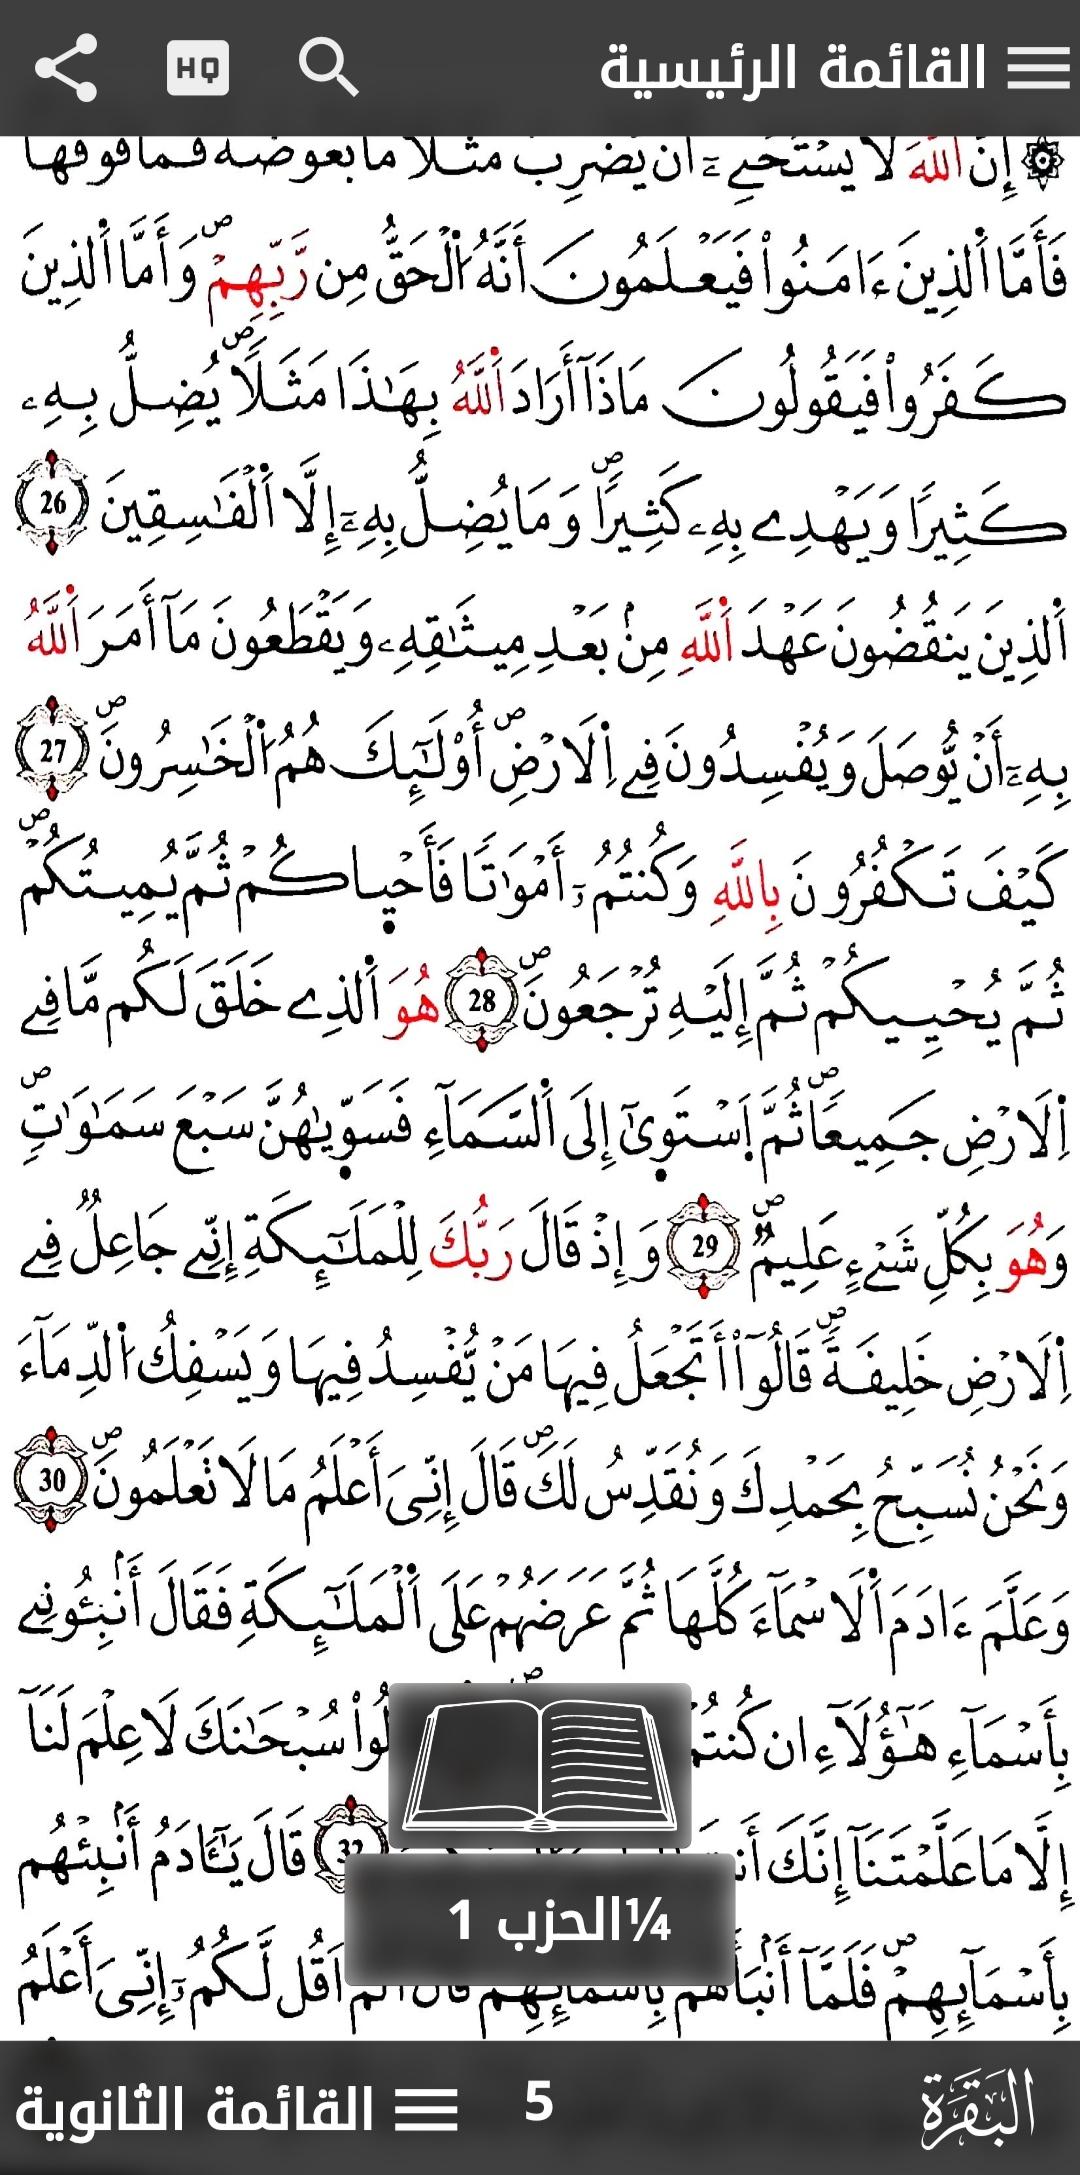 القائمة الرئيسية
HQ
إِنَّ اَللَّهَ لَا يَسْتَحْيِۦٓ أَنْ يَّضْرِبَ مَثَلًا مَّا بَعُوضَةً فَمَا فَوْقَهَا
فَأَمَّا اَلذِينَ ءَامَنُواْ فَيَعْلَمُونَ أَنَّهُ اُلْحَقُّ مِن رَّبِّهِمْۖ وَأَمَّا اَلذِينَ
كَفَرُواْ فَيَقُولُونَ مَاذَآ أَرَادَ اَللَّهُ بِهَٰذَا مَثَلًاۖ يُضِلُّ بِهِۦ
كَثِيرًا وَيَهْدِے بِهِۦ كَثِيرًاۖ وَمَا يُضِلُّ بِهِۦٓ إِلَّا اَلْفَٰسِقِينَ 26
اَلذِينَ يَنقُضُونَ عَهْدَ اَللَّهِ مِنۢ بَعْدِ مِيثَٰقِهِۦ وَيَقْطَعُونَ مَآ أَمَرَ اَللَّهُ
بِهِۦٓ أَنْ يُّوصَلَ وَيُفْسِدُونَ فِے اِلَارْضِۖ أُوْلَٰٓئِكَ هُمُ اُلْخَٰسِرُونَۖ 27
كَيْفَ تَكْفُرُونَ بِاللَّهِ وَكُنتُمُۥٓ أَمْوَٰتًا فَأَحْيٜاكُمْ ثُمَّ يُمِيتُكُمْۖ
ثُمَّ يُحْيِيكُمْ ثُمَّ إِلَيْهِ تُرْجَعُونَۖ 28 هُوَ اَلذِے خَلَقَ لَكُم مَّا فِے
اِلَارْضِ جَمِيعًاۖ ثُمَّ اَسْتَوٜىٰٓ إِلَى اَلسَّمَآءِ فَسَوّٜيٰهُنَّ سَبْعَ سَمَٰوَٰتٍۖ
وَهُوَ بِكُلِّ شَےْءٍ عَلِيمٌۖ 29 وَإِذْ قَالَ رَبُّكَ لِلْمَلَٰٓئِكَةِ إِنِّے جَاعِلٌ فِے
اِلَارْضِ خَلِيفَةًۖ قَالُوٓاْ أَتَجْعَلُ فِيهَا مَنْ يُّفْسِدُ فِيهَا وَيَسْفِكُ اُلدِّمَآءَ
وَنَحْنُ نُسَبِّحُ بِحَمْدِكَ وَنُقَدِّسُ لَكَۖ قَالَ إِنِّىَ أَعْلَمُ مَا لَا تَعْلَمُونَۖ 30
وَعَلَّمَ ءَادَمَ اَلَاسْمَآءَ كُلَّهَا ثُمَّ عَرَضَهُمْ عَلَى اَلْمَلَٰٓئِكَةِ فَقَالَ أَنۢبِـُٔونِے
بِأَسْمَآءِ هَٰٓؤُلَآءِ ان كُنتُمْ سُبْحَٰنَكَ لَا عِلْمَ لَنَآ
إِلَّا مَا عَلَّمْتَنَآ إِنَّكَ أَنتَ 32 قَالَ يَٰٓـَٔادَمُ أَنۢبِئْهُم
بِأَسْمَآئِهِمْۖ فَلَمَّآ أَنۢبَأَهُم بِأَسْمَآئِهِمْ قَالَ أَلَمَ اَقُل لَّكُمُۥٓ إِنِّىَ أَعْلَمُ
¼الحزب 1
البقرة
5
القائمة الثانوية